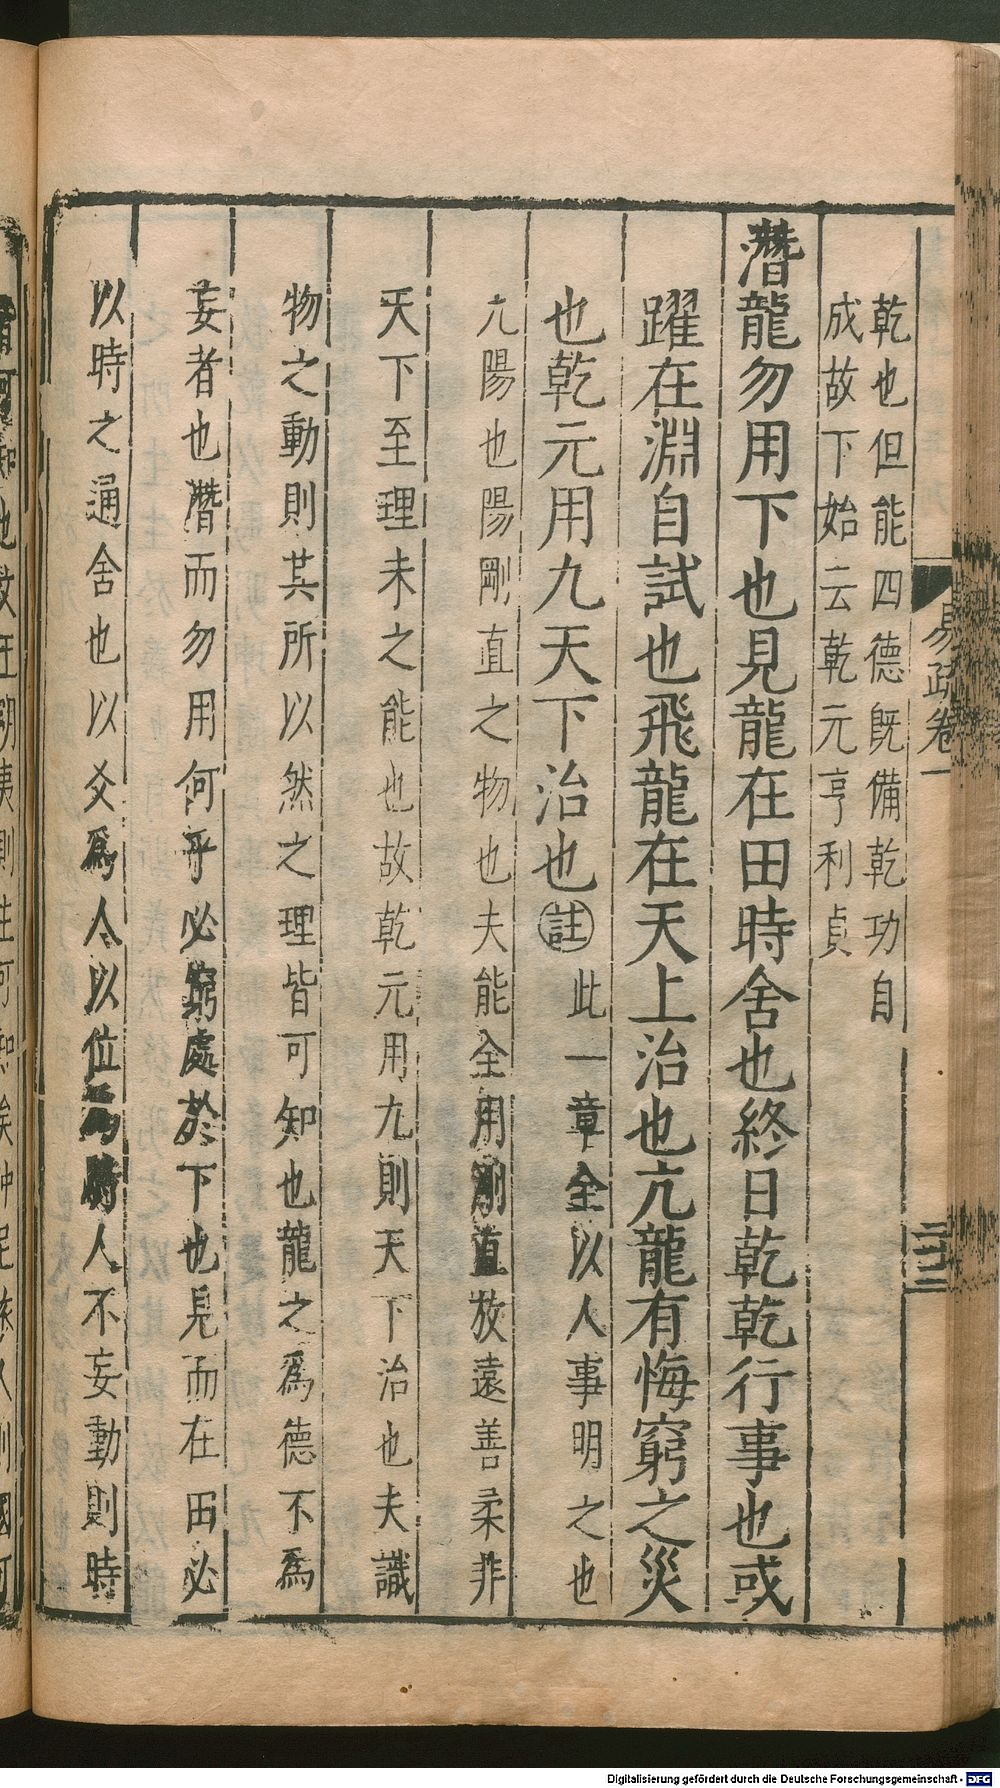 易疏卷一
二十二
乾也但能四德既備乾功自
成故下始云乾元亨利貞
潛龍勿用下也見龍在田時舍也終日乾乾行事也或
躍在淵自試也飛龍在天上治也亢龍有悔窮之災
也乾元用九天下治也註此一章全以人事明之也
九陽也陽剛直之物也夫能全用剛直放遠善柔非
天下至理未之能也故乾元用九則天下治也夫識
物之動則其所以然之理皆可知也龍之為德不為
妄者也潛而勿用何乎必窮處於下也見而在田必
以時之通舍也以爻為人以位為時人不妄動則時
Digitalisierung gefördert durch die Deutsche Forschungsgemeinschaft - DFG